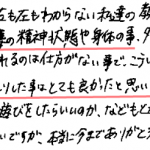 右も左もわからない私達の
の精神状態や身体の事、
れるのは仕方がない事で、こうい
りした事はとても良かたと思い
遊びをしたらいいのか、なども
いですが、本当に今までありがと